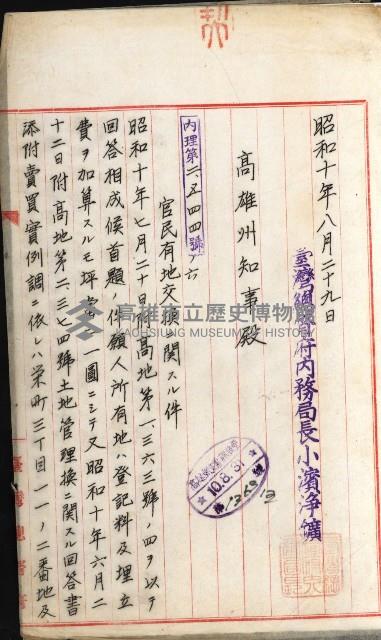 昭和十年八月二十九日
臺灣總督府内務局長小濱淨鑛
高雄州知事殿
内理第二、五四四號ノ六
官民有地交換ニ関スル件
昭和十年七月二十日附高地第一、三六三號ノ四ヲ以テ
回答相成候首題ノ件願人所有地ハ登記料及埋立
費ヲ加算スルモ坪當一圓ニシテ又昭和十年六月二
十二日附高地第二、三七四號土地管理換ニ関スル回答書
添附賣買實例調ニ依レハ栄町三丁目一一ノ二番地及
10.8.31
1363
高雄市立歷史博物館
KAOHSIUNG MUSEUM OF HISTORY
臺灣總督府